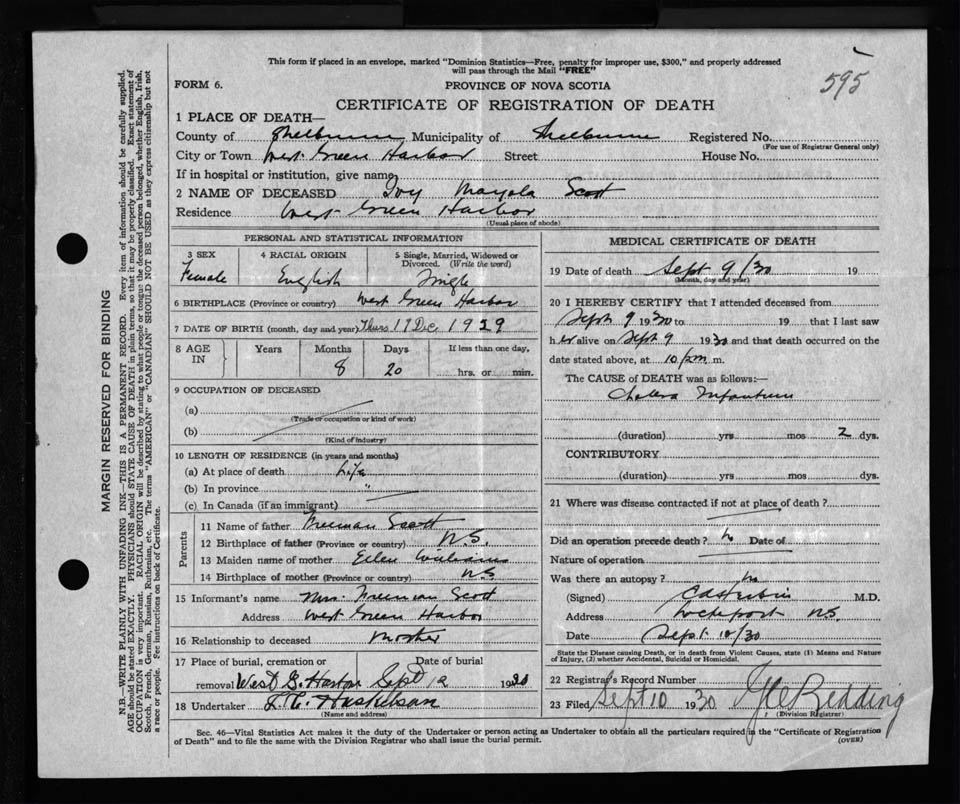 This form if placed in an envelope, marked "Dominion Statistics—Free, penalty for improper use, $300," and properly addressed
will pass through the Mail "FREE"
595
FORM 6.
PROVINCE OF NOVA SCOTIA
CERTIFICATE OF REGISTRATION OF DEATH
1 PLACE OF DEATH—
County of Shelburne Municipality of Shelburne Registered No.
(For use of Registrar General only)
City or Town West Green Harbor Street House No.
If in hospital or institution, give name
2 NAME OF DECEASED Ivy Mayola Scott
Residence West Green Harbor
(Usual place of abode)
PERSONAL AND STATISTICAL INFORMATION
3 SEX 4 RACIAL ORIGIN 5 Single, Married, Widowed or
Divorced. (Write the word)
Female English Single
6 BIRTHPLACE (Province or country) West Green Harbor
7 DATE OF BIRTH (month, day and year) Thurs 19 Dec 1929
8 AGE IN Years Months Days If less than one day,
8 20 hrs. or min.
9 OCCUPATION OF DECEASED
(a)
(Trade or occupation or kind of work)
(b)
(Kind of industry)
10 LENGTH OF RESIDENCE (in years and months)
(a) At place of death Life
(b) In province "
(c) In Canada (if an immigrant)
Parents
11 Name of father Freeman Scott
12 Birthplace of father (Province or country) N.S.
13 Maiden name of mother Ellen Williams
14 Birthplace of mother (Province or country) N.S.
15 Informant's name Mrs. Freeman Scott
Address West Green Harbor
16 Relationship to deceased Mother
17 Place of burial, cremation or Date of burial
removal West G. Harbor Sept 12 1930
18 Undertaker
(Name and address)
MEDICAL CERTIFICATE OF DEATH
19 Date of death Sept 9/30 19
(Month, day and year)
20 I HEREBY CERTIFY that I attended deceased from
Sept 9 1930 to 19 that I last saw
her alive on Sept 9 1930 and that death occurred on the
date stated above, at 10 pm m.
The CAUSE of DEATH was as follows:—
Cholera Infantum
(duration) yrs mos 2 dys.
CONTRIBUTORY
(duration) yrs mos dys.
21 Where was disease contracted if not at place of death?
Did an operation precede death? No Date of
Nature of operation
Was there an autopsy? No
(Signed) M.D.
Address Lockeport N.S.
Date Sept 10/30
State the Disease causing Death, or in death from Violent Causes, state (1) Means and Nature
of Injury, (2) whether Accidental, Suicidal or Homicidal.
22 Registrar's Record Number
23 Filed Sept 10 1930 Redding
(Division Registrar)
Sec. 46—Vital Statistics Act makes it the duty of the Undertaker or person acting as Undertaker to obtain all the particulars required in the "Certificate of Registration
of Death" and to file the same with the Division Registrar who shall issue the burial permit.
(OVER)
MARGIN RESERVED FOR BINDING
N.B.—WRITE PLAINLY WITH UNFADING INK—THIS IS A PERMANENT RECORD. Every item of information should be carefully supplied.
AGE should be stated EXACTLY. PHYSICIANS should STATE CAUSE OF DEATH in plain terms, so that it may be properly classified. Exact statement of
OCCUPATION is very important. RACIAL ORIGIN will be described by stating to what people or tongue the deceased person belonged, whether English, Irish,
Scotch, French, German, Russian, Ruthenian, etc. The terms "AMERICAN" or "CANADIAN" SHOULD NOT BE USED as they express citizenship but not
a race or people. Fee instructions on back of Certificate.